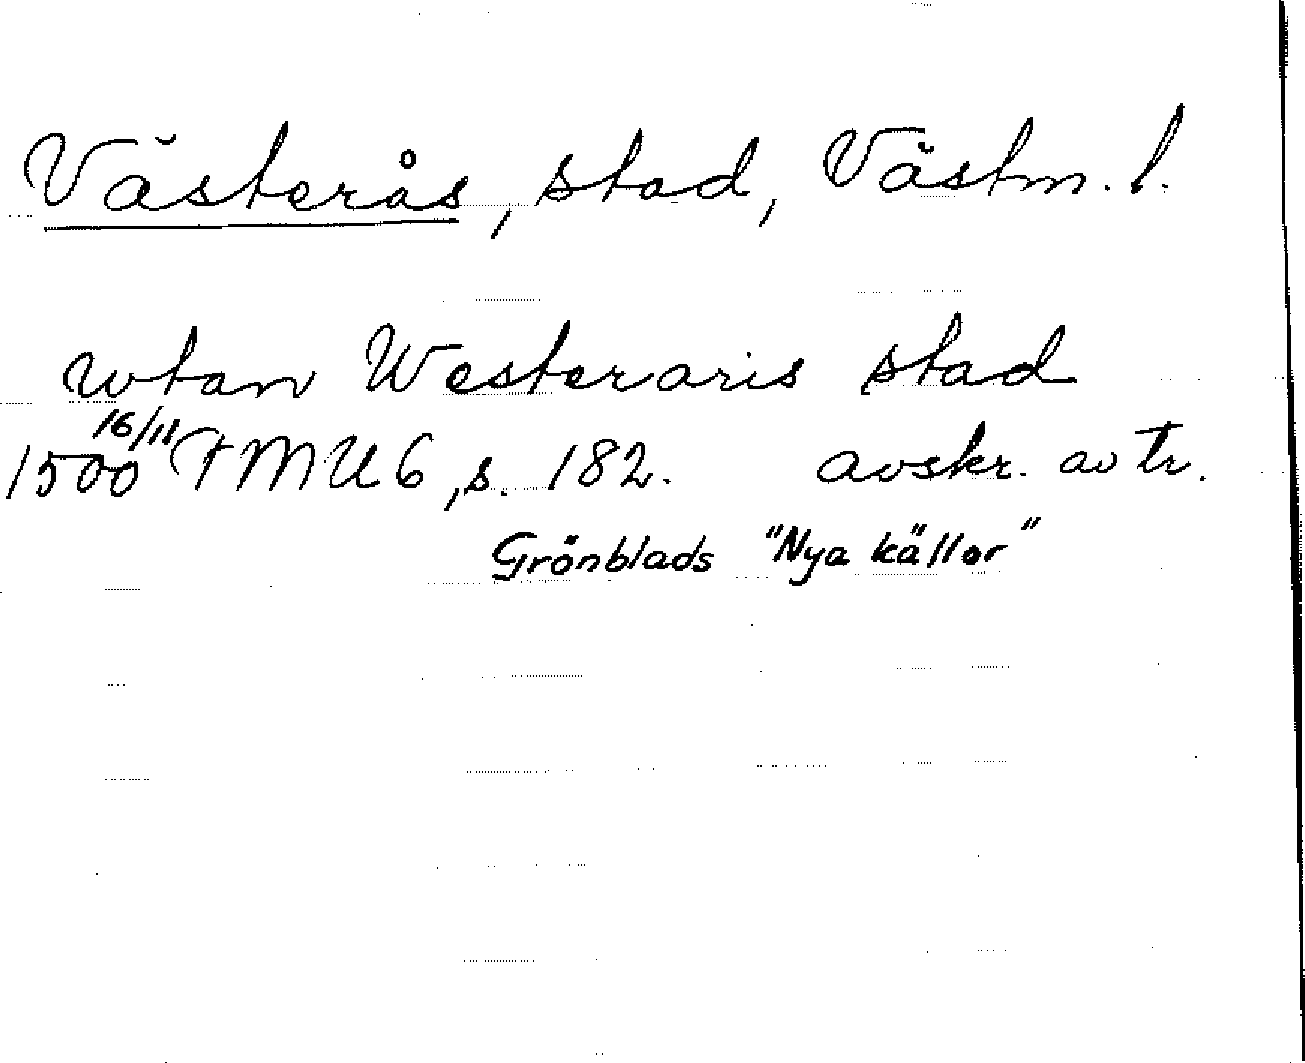 Västerås, stad, Västm. l.
wtan Westeraris stad
1500 16/11 FMU 6, s. 182. avskr. av tr.
Grönblads "Nya källor"